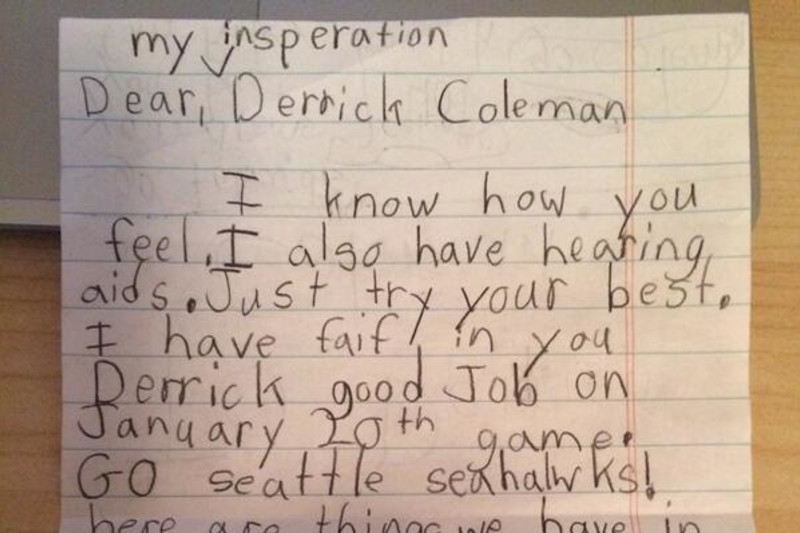 my insperation
Dear, Derrick Coleman
I know how you
feel. I also have hearing
aids. Just try your best.
I have faif in you
Derrick good Job on
January 20th game.
GO seattle seahalwks!
here are things we have in